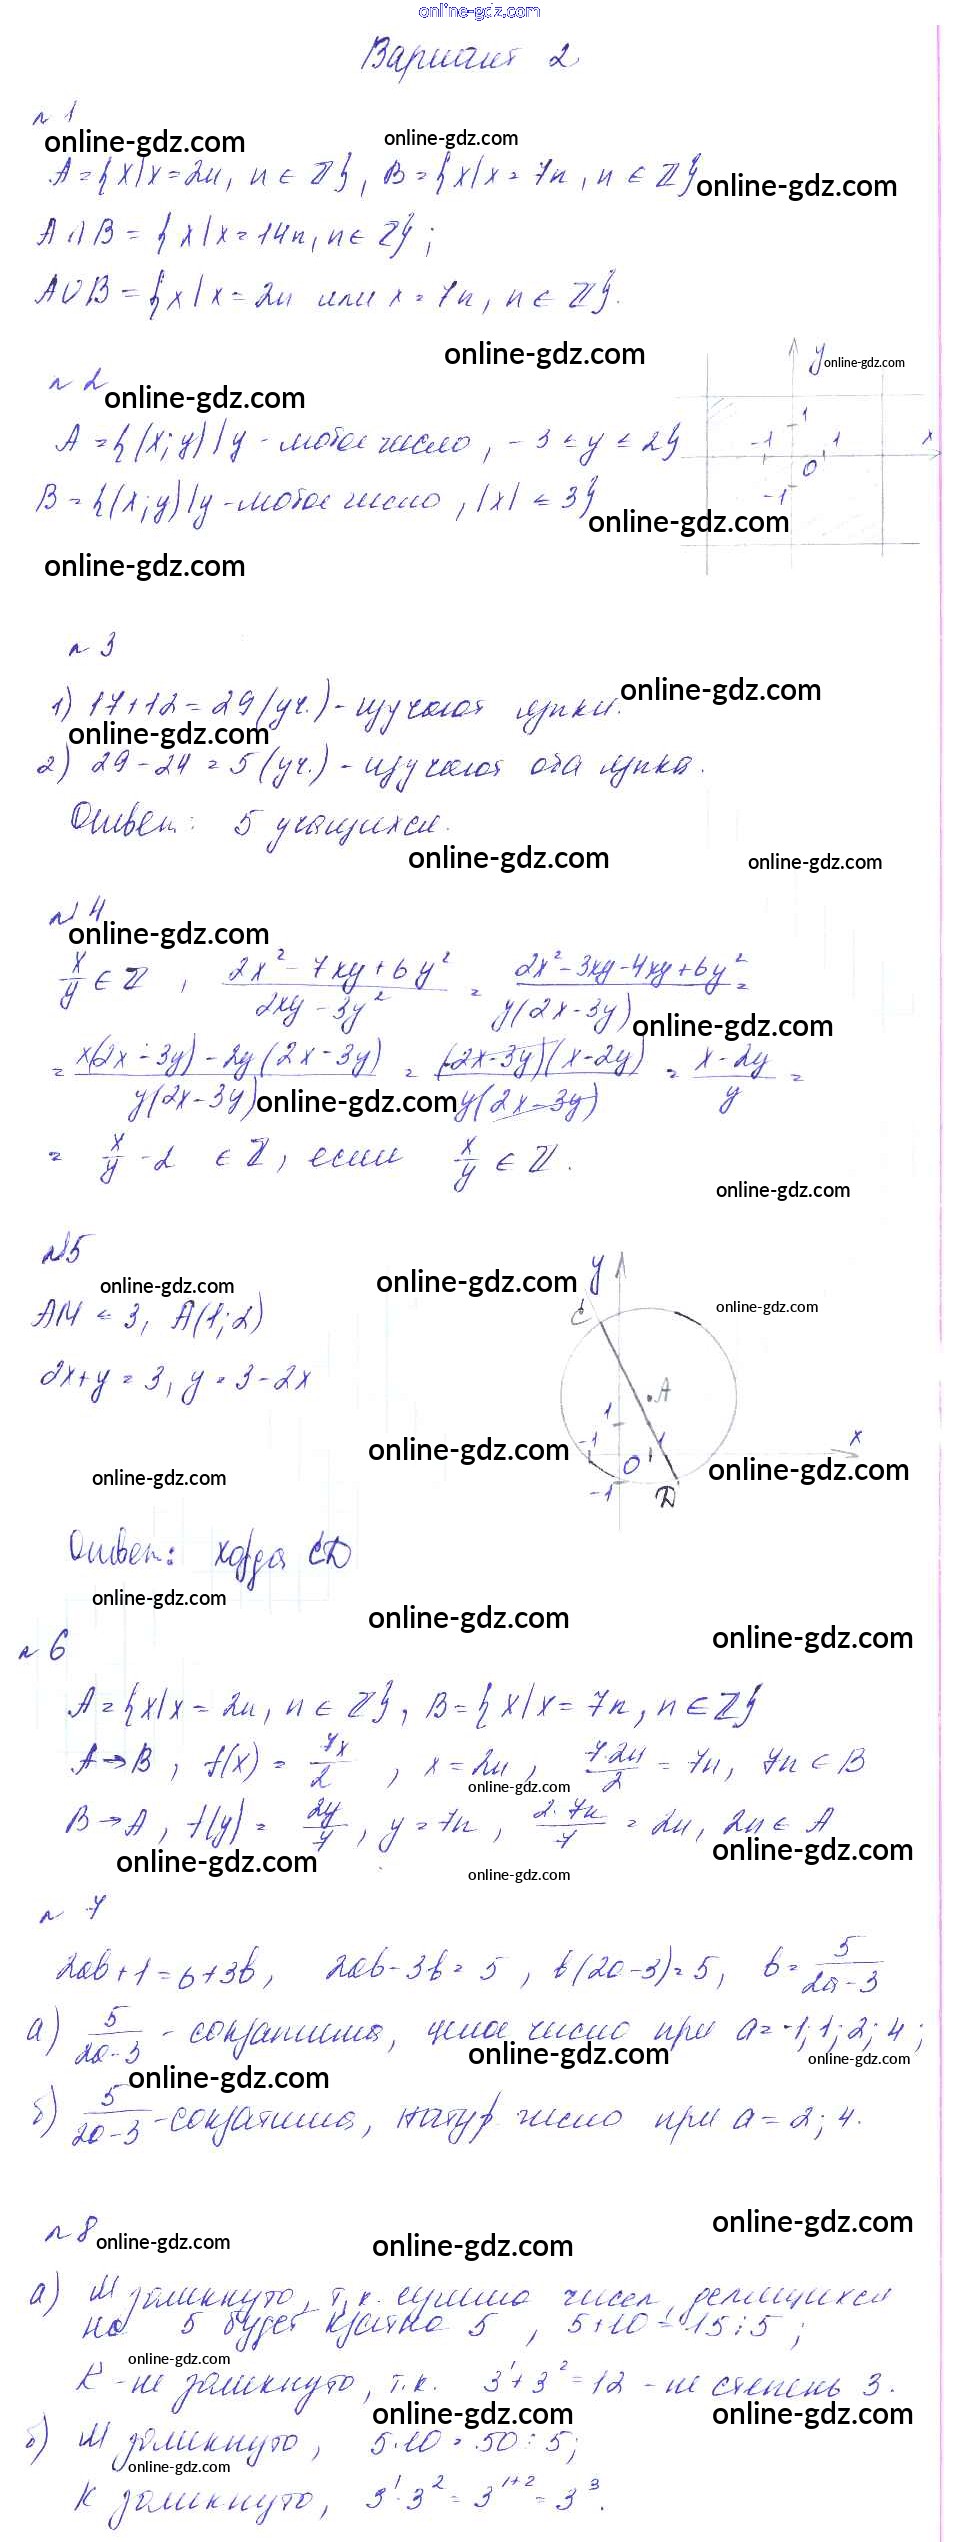 online-gdz.com
Вариант 2
№ 1
online-gdz.com online-gdz.com
A = {x/x = 2n, n ∈ Z}, B = {x/x = 7n, n ∈ Z} online-gdz.com
A ∩ B = {x/x = 14n, n ∈ Z};
A ∪ B = {x/x = 2n или x = 7n, n ∈ Z}.
online-gdz.com y online-gdz.com
№ 2 online-gdz.com
A = {(x; y) / y - любое число, -3 ≤ y ≤ 2}
1 -1 1 x 0 -1
B = {(x; y) / y - любое число, |x| ≤ 3}
online-gdz.com
online-gdz.com
№ 3
1) 17+12 = 29 (уч.) - изучают языки. online-gdz.com
online-gdz.com
2) 29 - 24 = 5 (уч.) - изучают оба языка.
Ответ: 5 учащихся.
online-gdz.com online-gdz.com
№ 4
online-gdz.com
x/y ∈ Z, (2x² - 7xy + 6y²)/(2xy - 3y²) = (2x² - 3xy - 4xy + 6y²)/(y(2x - 3y)) =
online-gdz.com
= (x(2x - 3y) - 2y(2x - 3y))/(y(2x - 3y)) = ((2x - 3y)(x - 2y))/(y(2x - 3y)) = (x - 2y)/y =
online-gdz.com
= x/y - 2 ∈ Z, если x/y ∈ Z.
online-gdz.com
№5
online-gdz.com online-gdz.com y
AM ≤ 3, A(1; 2) C online-gdz.com
2x + y = 3, y = 3 - 2x
A 1 -1 0 1 x -1 D
online-gdz.com
online-gdz.com online-gdz.com
Ответ: хорда CD
online-gdz.com
online-gdz.com
№ 6 online-gdz.com
A = {x/x = 2n, n ∈ Z}, B = {x/x = 7n, n ∈ Z}
A → B, f(x) = 7x/2, x = 2n, 7·2n/2 = 7n, 7n ∈ B
online-gdz.com
B → A, f(y) = 2y/7, y = 7n, 2·7n/7 = 2n, 2n ∈ A
online-gdz.com online-gdz.com
online-gdz.com
№ 7
2ab + 1 = 6 + 3b, 2ab - 3b = 5, b(2a - 3) = 5, b = 5/(2a - 3)
а) 5/(2a - 3) - сократима, целое число при a = -1; 1; 2; 4;
online-gdz.com online-gdz.com
online-gdz.com
б) 5/(2a - 3) - сократима, натур число при a = 2; 4.
online-gdz.com
№ 8 online-gdz.com online-gdz.com
а) M замкнуто, т.к. сумма чисел, делящихся
на 5 будет кратна 5, 5+10 = 15 ⋮ 5;
online-gdz.com
K - не замкнуто, т.к. 3¹ + 3² = 12 - не степень 3.
online-gdz.com online-gdz.com
б) M замкнуто, 5·10 = 50 ⋮ 5;
online-gdz.com
K замкнуто, 3¹·3² = 3¹⁺² = 3³.